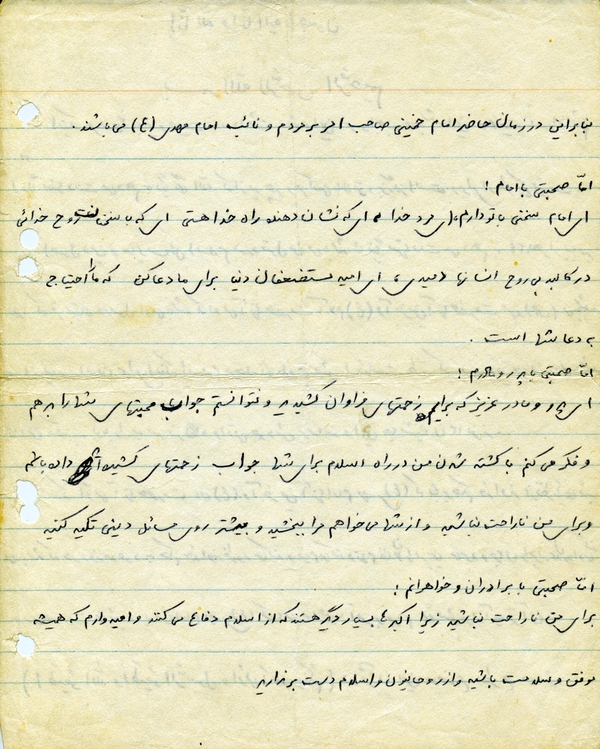 بنابراین در زمان حاضر امام خمینی صاحب امر بر مردم و نائب امام مهدی (ع) می باشند.
امّا صحبتی با امام !
ای امام سخنی با تو دارم، ای مرد خدا ای که نشان دهنده راه خدا هستی ای که با سخنانت روح خدائی
در کالبد بی روح انسانها دمیدی، ای امید مستضعفان دنیا برای ما دعا کن که ما احتیاج
به دعا شما است .
امّا صحبتی با پدر و مادرم !
ای پدر و مادر عزیز که برایم زحمتهای فراوان کشیدید و نتوانستم جواب محبتهای شما را بدهم
و فکر می کنم با کشته شدن من در راه اسلام برای شما جواب زحمتهای کشیده داده باشم
و برای من ناراحت نباشید و از شما می خواهم مرا ببخشید و بیشتر روی مسائل دینی تکیه کنید
امّا صحبتی با برادران و خواهرانم !
برای من ناراحت نباشید زیرا اکبرها بسیار دیگر هستند که از اسلام دفاع می کنند و امیدوارم که همیشه
موفق و سلامت باشید و از روحانیون و اسلام دست برندارید